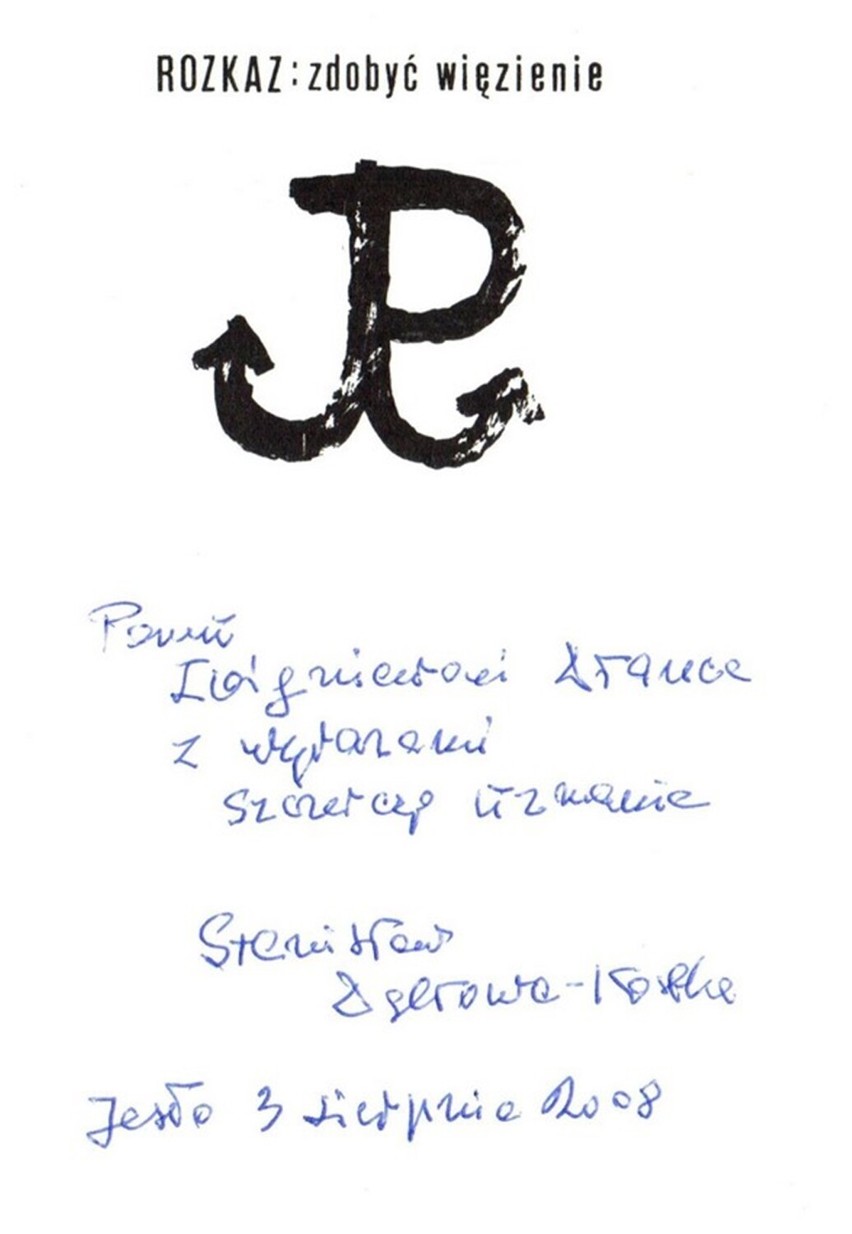 ROZKAZ: zdobyć więzienie
Panu
Zbigniewowi
z wyrazami
szczerego uznania
Stanisław
Dąbrowa-Kostka
Jasło 3 sierpnia 2008